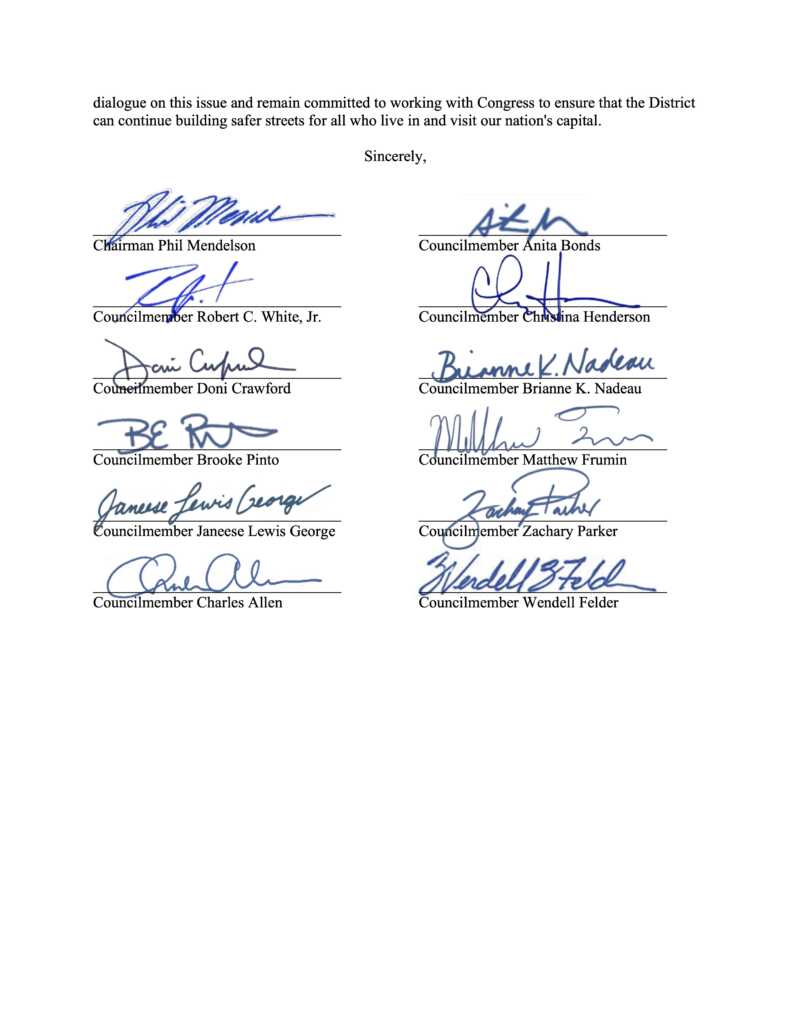 dialogue on this issue and remain committed to working with Congress to ensure that the District
can continue building safer streets for all who live in and visit our nation's capital.
Sincerely,
Phil Mendelson
Chairman Phil Mendelson
Councilmember Anita Bonds
Councilmember Robert C. White, Jr.
Councilmember Christina Henderson
Doni Crawford
Councilmember Doni Crawford
Brianne K. Nadeau
Councilmember Brianne K. Nadeau
Councilmember Brooke Pinto
Councilmember Matthew Frumin
Janeese Lewis George
Councilmember Janeese Lewis George
Zachary Parker
Councilmember Zachary Parker
Councilmember Charles Allen
Wendell Felder
Councilmember Wendell Felder